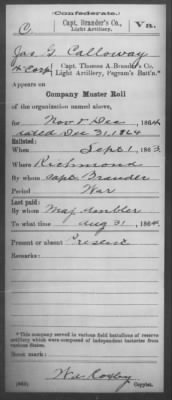 Confederate.
C
Capt. Brander's Co.,
Light Artillery.
Va.
Jas G Calloway
Corp, Capt. Thomas A. Brander's Co.
Light Artillery, Pegram's Batt'n.*
Appears on
Company Muster Roll
of the organization named above,
for Nov & Dec, 1864.
dated Dec 31, 1864
Enlisted:
When Sept 1, 1863
Where Richmond
By whom Capt. Brander
Period War
Last paid:
By whom Maj Ambler
To what time Aug 31, 1864.
Present or absent Present
Remarks:
*This company served in various field batteries of reserve
artillery which were composed of independent batteries from
various States.
Book mark:
Copyist.